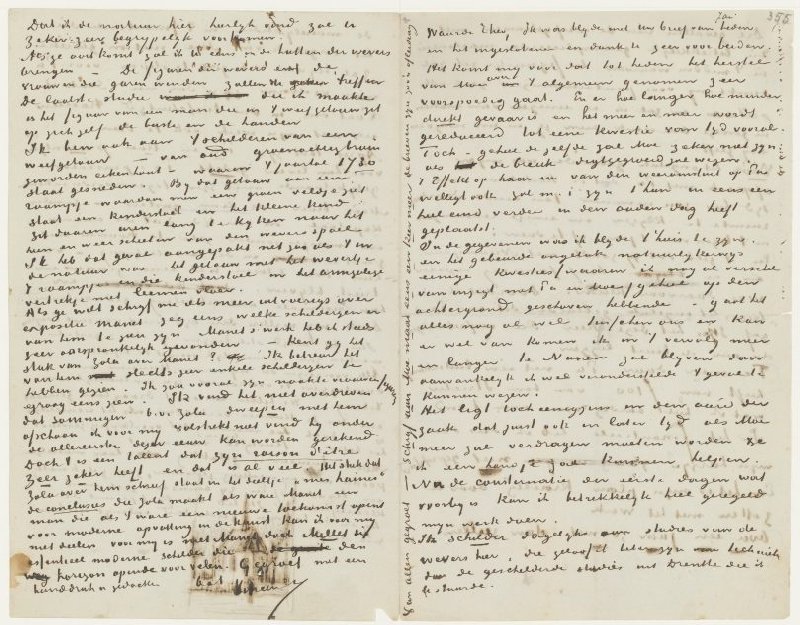 Jan 355
Waarde Theo, Ik was blijde met uw brief van heden
en het ingeslotene en dank U zeer voor beiden.
Het komt mij voor dat tot heden het herstel
van Moe over 't algemeen genomen zeer
voorspoedig gaat. En er hoe langer hoe minder
direkt gevaar is en het meer en meer wordt
gereduceerd tot eene kwestie van tijd vooral.
Toch – geheel dezelfde zal Moe zeker niet zijn
als de breuk digtgegroeid zal wezen.
't Effekt op haar en van den weeromstuit op Pa
wellegt ook zal m.i. zijn 't hun in eens een
heel eind verder in den ouden dag heeft
geplaatst.
In de gegevens was ik blijde t'huis te zijn.
en het gebeurde ongeluk natuurlijkerwijs
eenige kwesties/waarin ik nog al verschil
van inzigt met Pa en Moe/geheel op den
achtergrond geschoven hebbende – gaat het
alles nog al wel tusschen ons en kan
er wel van komen ik in 't vervolg meer
en langer te Nunen zal blijven dan
aanvankelijk ik wel veronderstelde 't geval te
kunnen wezen.
Het ligt toch eenigzins in den aard der
zaak dat juist ook in later tijd als Moe
meer zal verdragen moeten worden ze
ik een handje zal kunnen helpen.
Nu de consternatie der eerste dagen wat
voorbij is kan ik betrekkelijk heel geregeld
mijn werk doen.
Ik schilder dagelijks aan studies van de
wevers hier, die geloof ik beter zijn van techniek
dan de geschilderde studies uit Drenthe die ik
U stuurde.
Van allen gegroet – schrijf aan Moe maar eens een keer meer de brieven zijn zoo'n afleiding
Dat ik de natuur hier heerlijk vond zal U
zeker zeer begrijpelijk voorkomen.
Als ge ooit komt zal ik U eens in de hutten der wevers
brengen – De figuren der wevers en of de
vrouwen die garen winden zullen U zeker treffen
De laatste studie die ik maakte
is het figuur van een man die in 't weefgetouw zit
op zich zelf de buste en de handen
Ik ben ook aan 't schilderen van een
weefgetouw – van oud groenachtig bruin
geworden eikenhout – waarin 't jaartal 1730
staat gesneden. Bij dat getouw aan een
raampje waardoor men een groen veldje ziet
staat een kinderstoel en het kleine kind
zit daarin uren lang te kijken naar het
heen en weer schieten van den wevers spoel
Ik heb dat geval aangepakt net zoo als 't in
de natuur was het getouw met het wevertje
't raampje en die kinderstoel in het armzalige
vertrekje met leemen vloer.
Als ge wilt schrijf me iets meer uitvoerigs over
expositie Manet zeg eens welke schilderijen er
van hem te zien zijn. Manet's werk heb ik steeds
zeer oorspronkelijk gevonden – Kent gij het
stuk van Zola over Manet? Ik betreur het
van hem slechts zeer enkele schilderijen te
hebben gezien. Ik zou vooral zijn naakte vrouwen/figuren
graag eens zien. Ik vind het niet overdreven
dat sommigen b.v. Zola dweepen met hem
ofschoon ik voor mij volstrekt niet vind hij onder
de allereersten dezer eeuw kan worden gerekend
Doch 't is een talent dat zijn raison d'être
Zeer zeker heeft en dat is al veel. Het stuk dat
Zola over hem schreef staat in het deeltje "mes haines"
de conclusies die Zola maakt als ware Manet een
man die als 't ware een nieuwe toekomst opent
voor moderne opvatting in de kunst kan ik voor mij
niet deelen voor mij is niet Manet doch Millet die
essentieel moderne schilder die den
horizon opende voor velen. Gegroet met een
handdruk in gedachte
Vincent